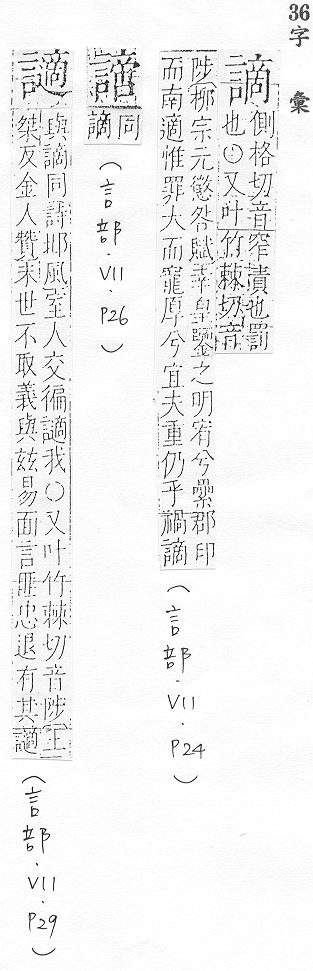 36字彙
謫 側格切音窄責也罰
也○又叶竹棘切音
陟柳宗元懲咎賦幸皇鑒之明宥兮纍郡印
而南適惟罪大而寵厚兮宜夫重仍乎禍謫
(言部.VII.P24)
同
謫
(言部.VII.P26)
讁 與謫同詩邶風室人交徧讁我○又叶竹棘切音陟王
粲反金人贊來世不取義與茲易面言匪忠退有其讁
(言部.VII.P29)